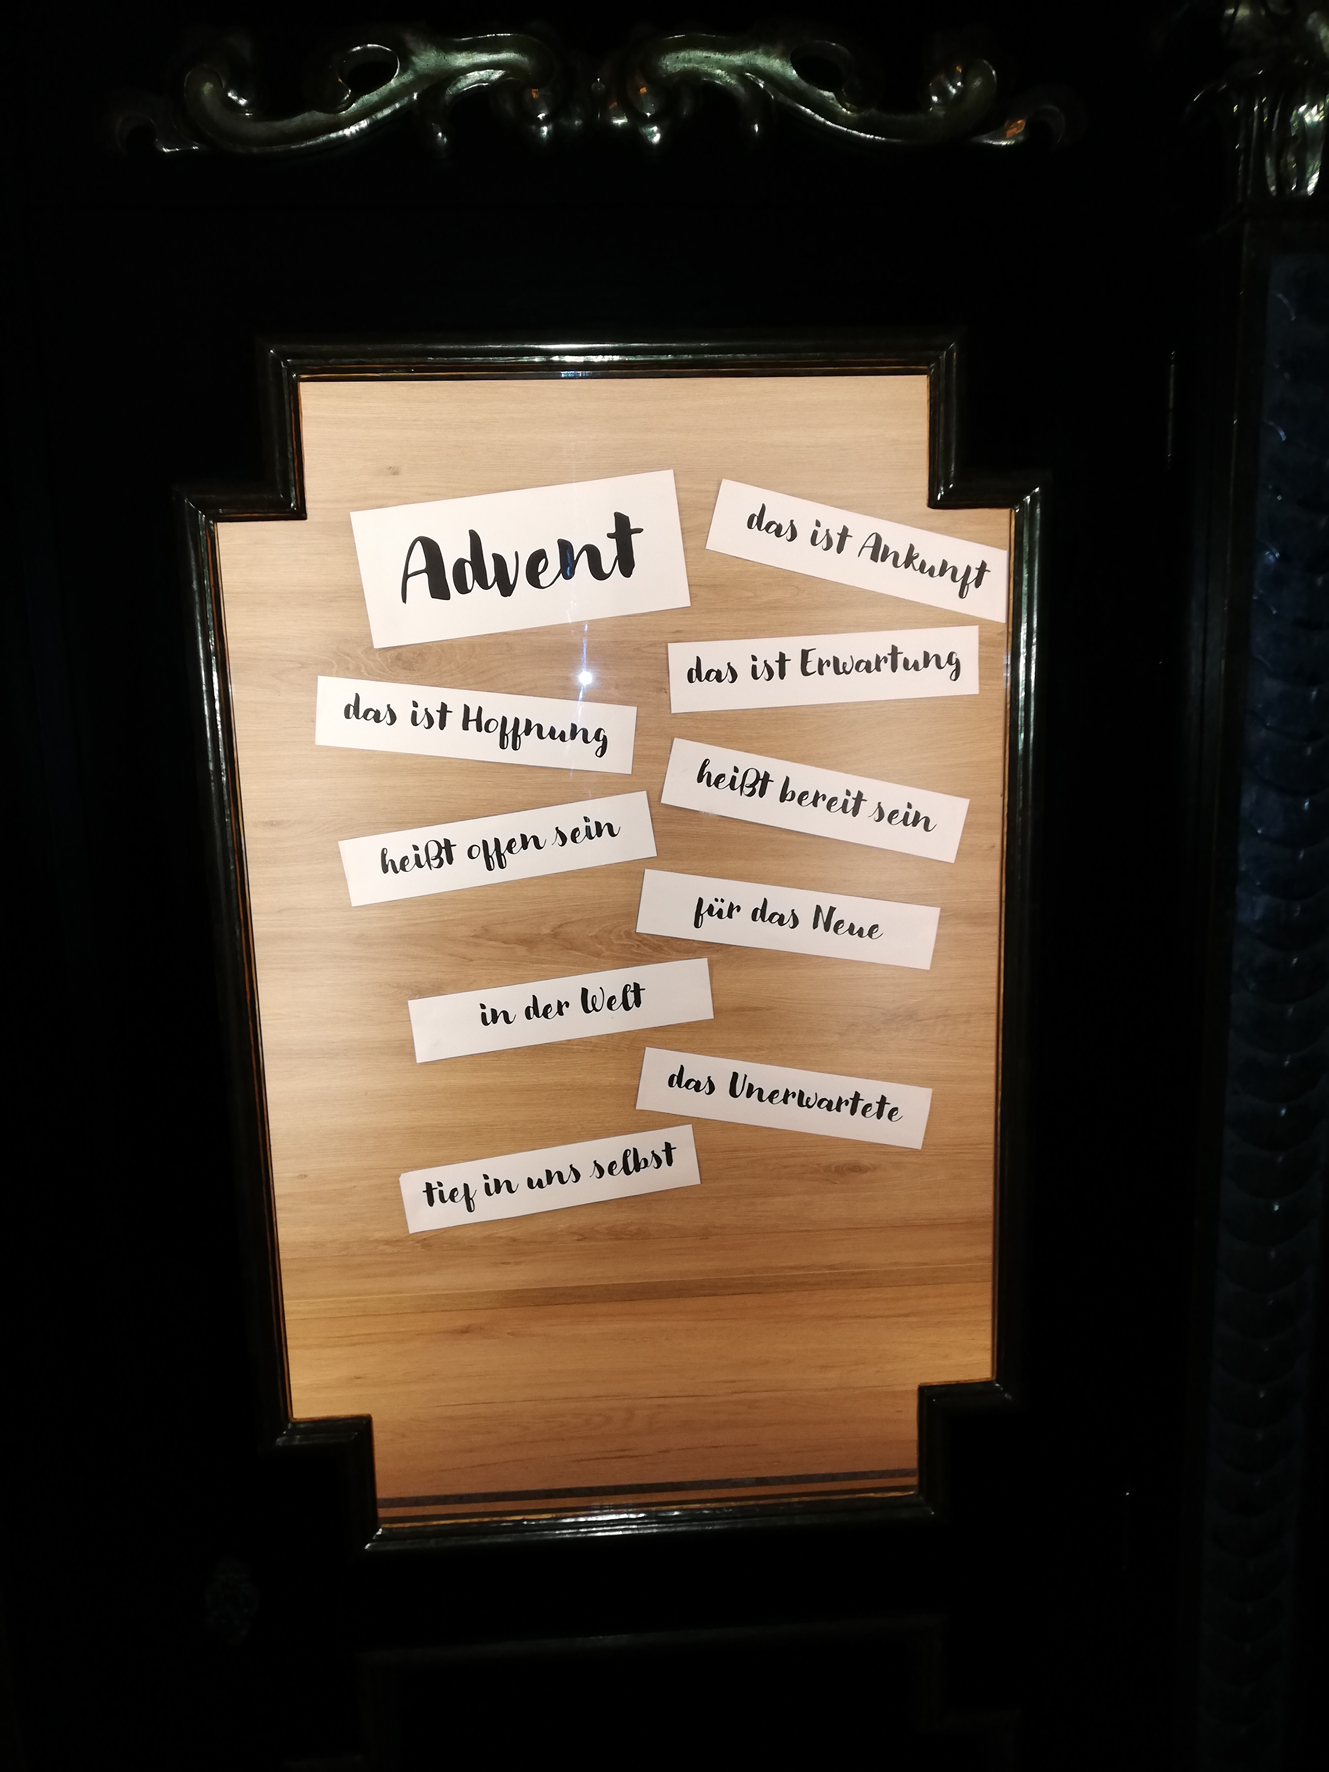 Advent
das ist Ankunft
das ist Erwartung
das ist Hoffnung
heißt bereit sein
heißt offen sein
für das Neue
in der Welt
das Unerwartete
tief in uns selbst